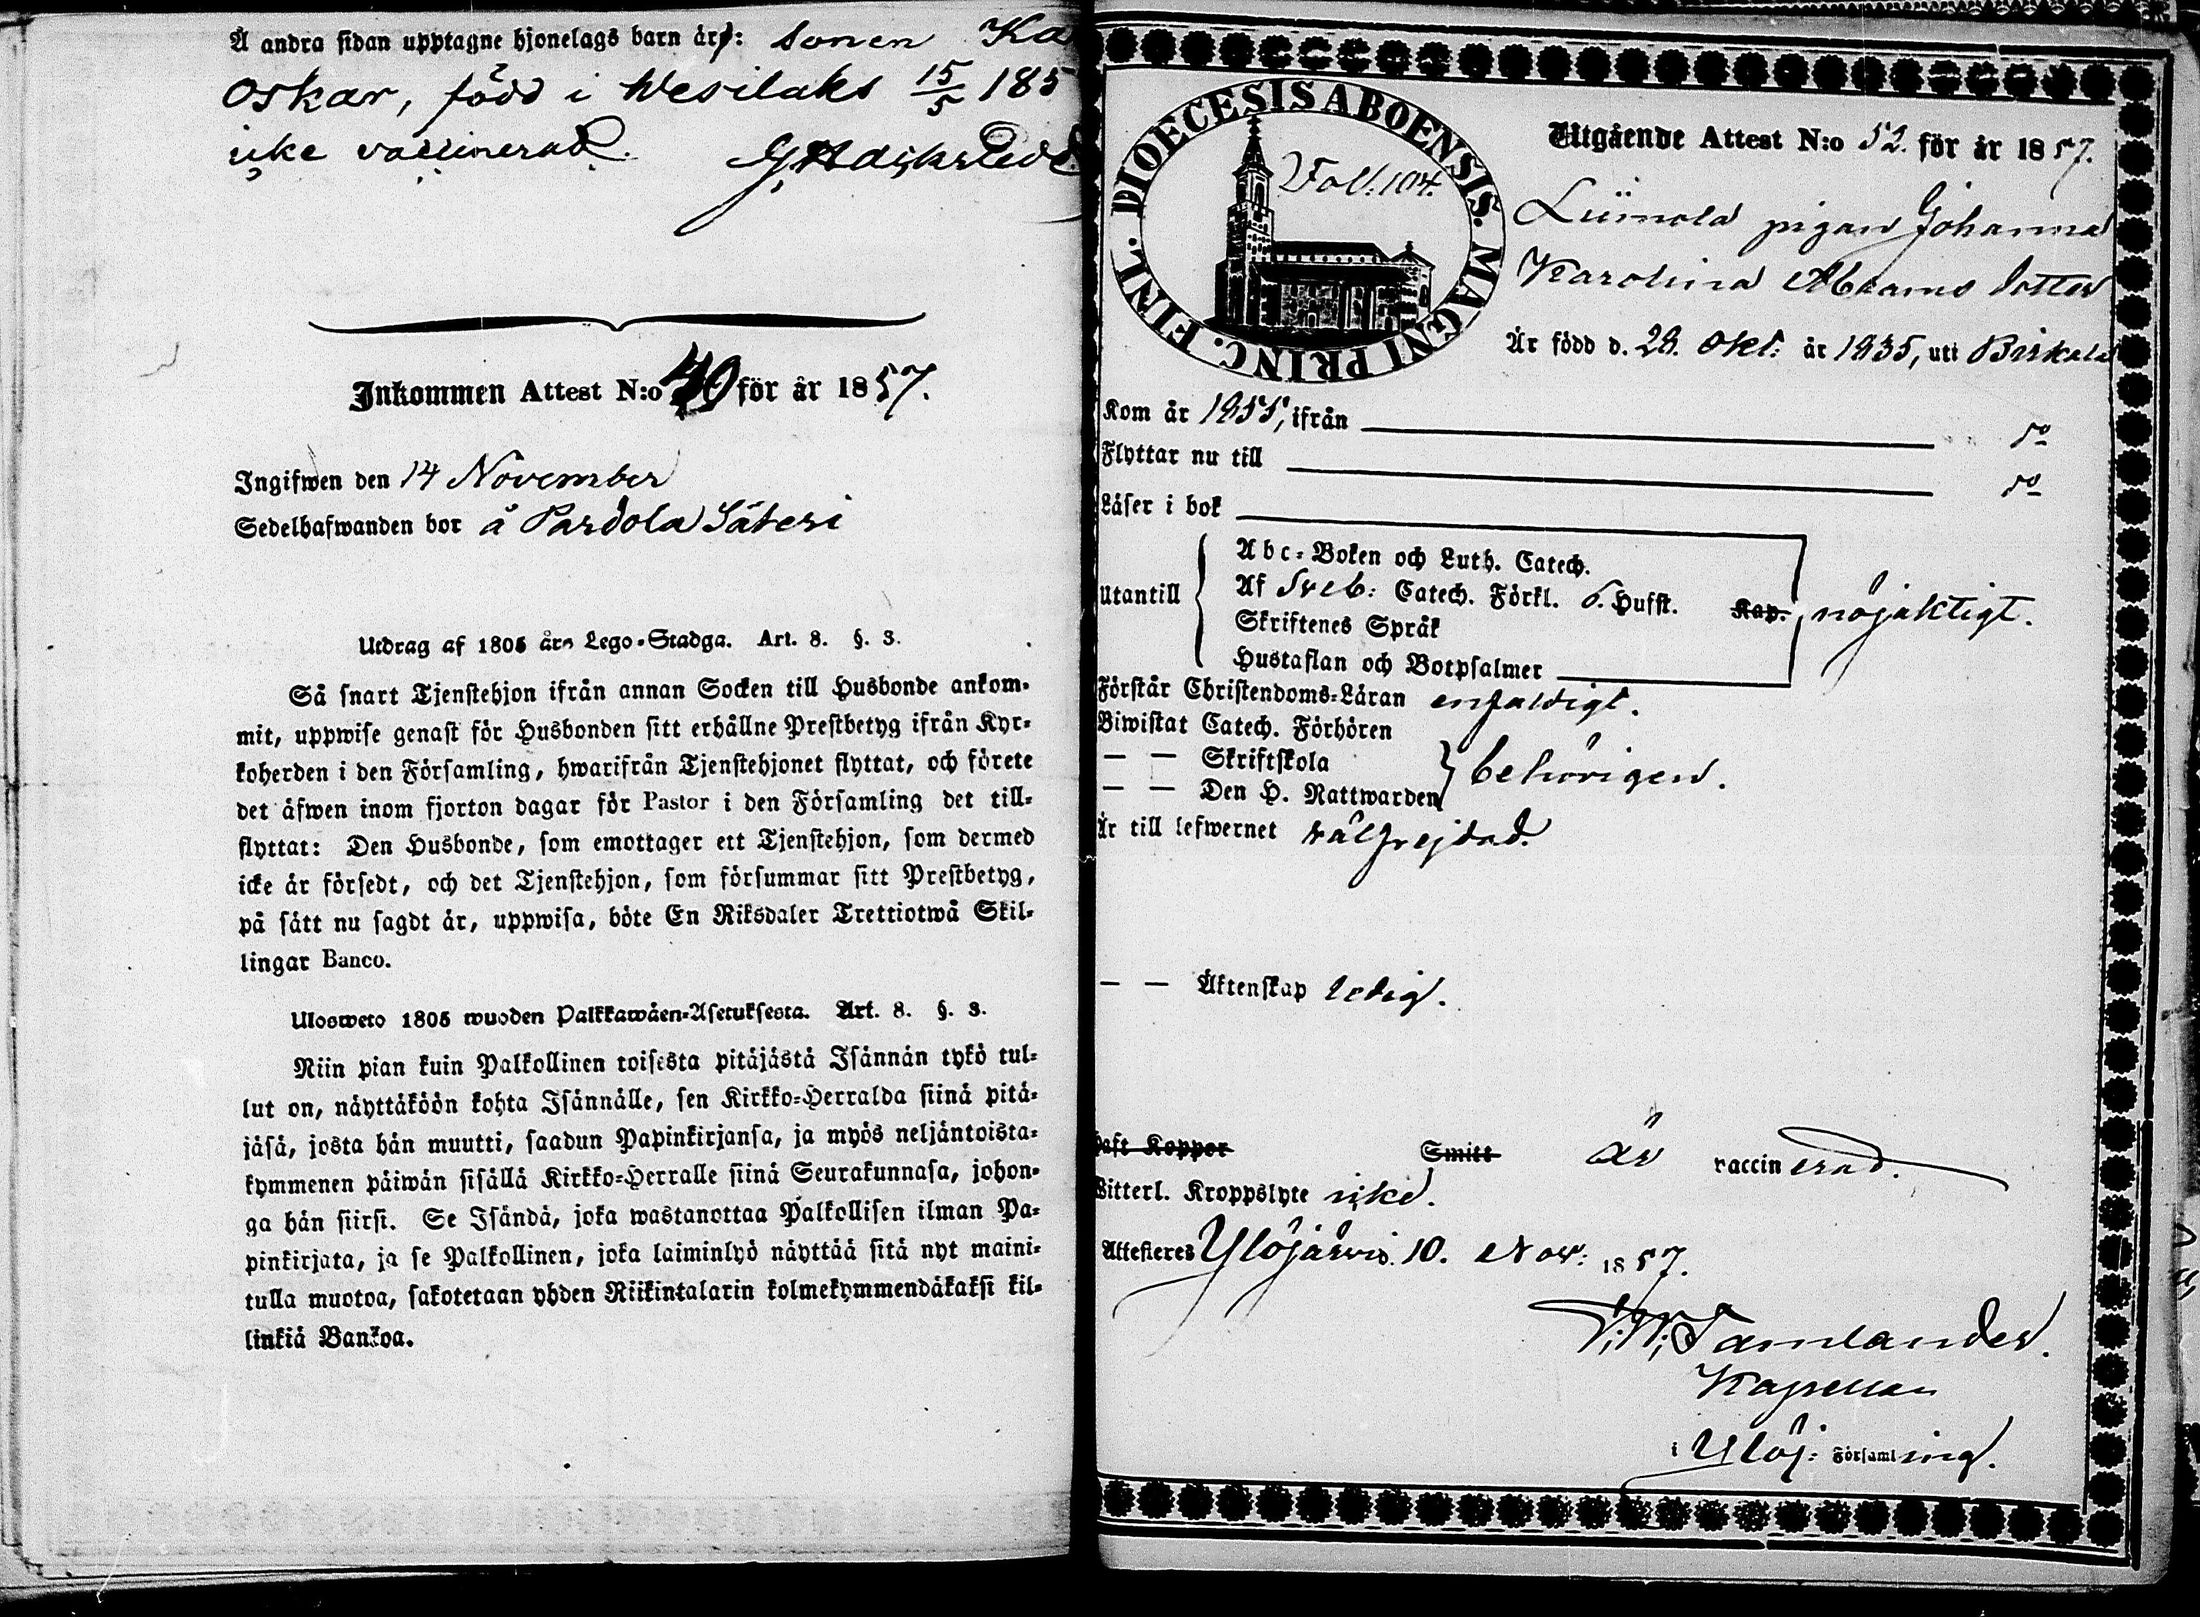 Å andra sidan upptagne hjonelags barn är: sonen Ka
Oskar, född i Wesilaks 15/5 185
icke vaccinerad.
Inkommen Attest N:o 40 för år 1857.
Ingifwen den 14 November
Sedelhafwanden bor å Pardola Säteri
Utdrag af 1805 års Lego-Stadga. Art. 8. §. 3.
Så snart Tjenstehjon ifrån annan Socken till Husbonde ankom-
mit, uppwise genast för Husbonden sitt erhållne Prestbetyg ifrån Kyr-
koherden i den Församling, hwarifrån Tjenstehjonet flyttat, och förete
det äfwen inom fjorton dagar för Pastor i den Församling det till-
flyttat: Den Husbonde, som emottager ett Tjenstehjon, som dermed
icke är försedt, och det Tjenstehjon, som försummar sitt Prestbetyg,
på sätt nu sagdt är, uppwisa, böte En Riksdaler Trettiotwå Skil-
lingar Banco.
Ulosweto 1805 wuoden Palkkawäen-Asetuksesta. Art. 8. §. 3.
Niin pian kuin Palkollinen toisesta pitäjästä Isännän tykö tul-
lut on, näyttäköön kohta Isännälle, sen Kirkko-Herralda siinä pitä-
jäsä, josta hän muutti, saadun Papinkirjansa, ja myös neljäntoista-
kymmenen päiwän sisällä Kirkko-Herralle siinä Seurakunnasa, johon-
ga hän siirsi. Se Isändä, joka wastanottaa Palkollisen ilman Pa-
pinkirjata, ja se Palkollinen, joka laiminlyö näyttää sitä nyt maini-
tulla muotoa, sakotetaan yhden Riikintalarin kolmekymmendäkaksi kil-
linkiä Bankoa.
DIOECESIS ABOENSIS. MAGNI PRINC. FINL.
Fol. 104.
Utgående Attest N:o 52. för år 1857.
pigan Johanna
Karolina Abrams dotter
Är född d. 28. Okt: år 1835, uti Birkala
Kom år 1855, ifrån
Flyttar nu till
Läser i bok
utantill
Abc-Boken och Luth. Catech.
Af Sveb: Catech. Förkl. 6. Hufst. Kap.
nöjaktigt.
Skriftenes Språk
Hustaflan och Botpsalmer
Förstår Christendoms-Läran enfaldigt.
Biwistat Catech. Förhören
— — Skriftskola
behörigen.
— — Den H. Nattwarden
Är till lefwernet välfrejdad.
— — Äktenskap ledig.
Haft Koppor Smitt är vaccinerad.
Witterl. Kroppslyte icke.
Attesteres Ylöjärvi. 10. Nov: 1857.
Tamlander.
Kapellan
i Ylöj: Församling.